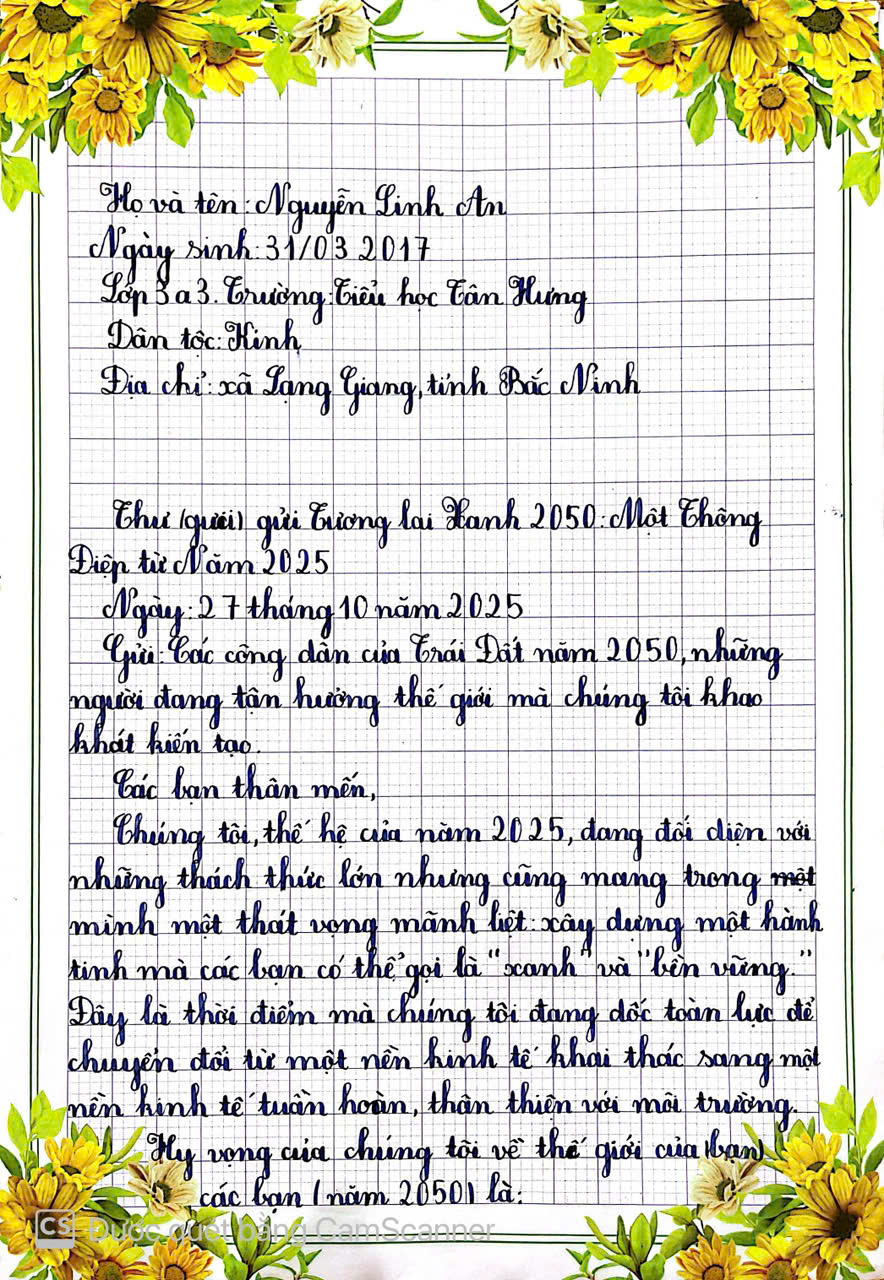 Họ và tên: Nguyễn Linh An
Ngày sinh: 31/03 2017
Lớp 3a3. Trường: Tiểu học Tân Hưng
Dân tộc: Kinh
Địa chỉ: xã Lạng Giang, tỉnh Bắc Ninh
Thư (gưỉi) gửi Tương lai Xanh 2050: Một Thông
Điệp từ Năm 2025
Ngày: 27 tháng 10 năm 2025
Gửi: Các công dân của Trái Đất năm 2050, những
người đang tận hưởng thế giới mà chúng tôi khao
khát kiến tạo.
Các bạn thân mến,
Chúng tôi, thế hệ của năm 2025, đang đối diện với
những thách thức lớn nhưng cũng mang trong một
mình một thát vọng mãnh liệt: xây dựng một hành
tinh mà các bạn có thể gọi là "xanh" và "bền vững."
Đây là thời điểm mà chúng tôi đang dốc toàn lực để
chuyển đổi từ một nền kinh tế khai thác sang một
nền kinh tế tuần hoàn, thân thiện với môi trường.
Hy vọng của chúng tôi về thế giới của (bạn)
các bạn (năm 20500) là:
CS Được quét bằng CamScanner